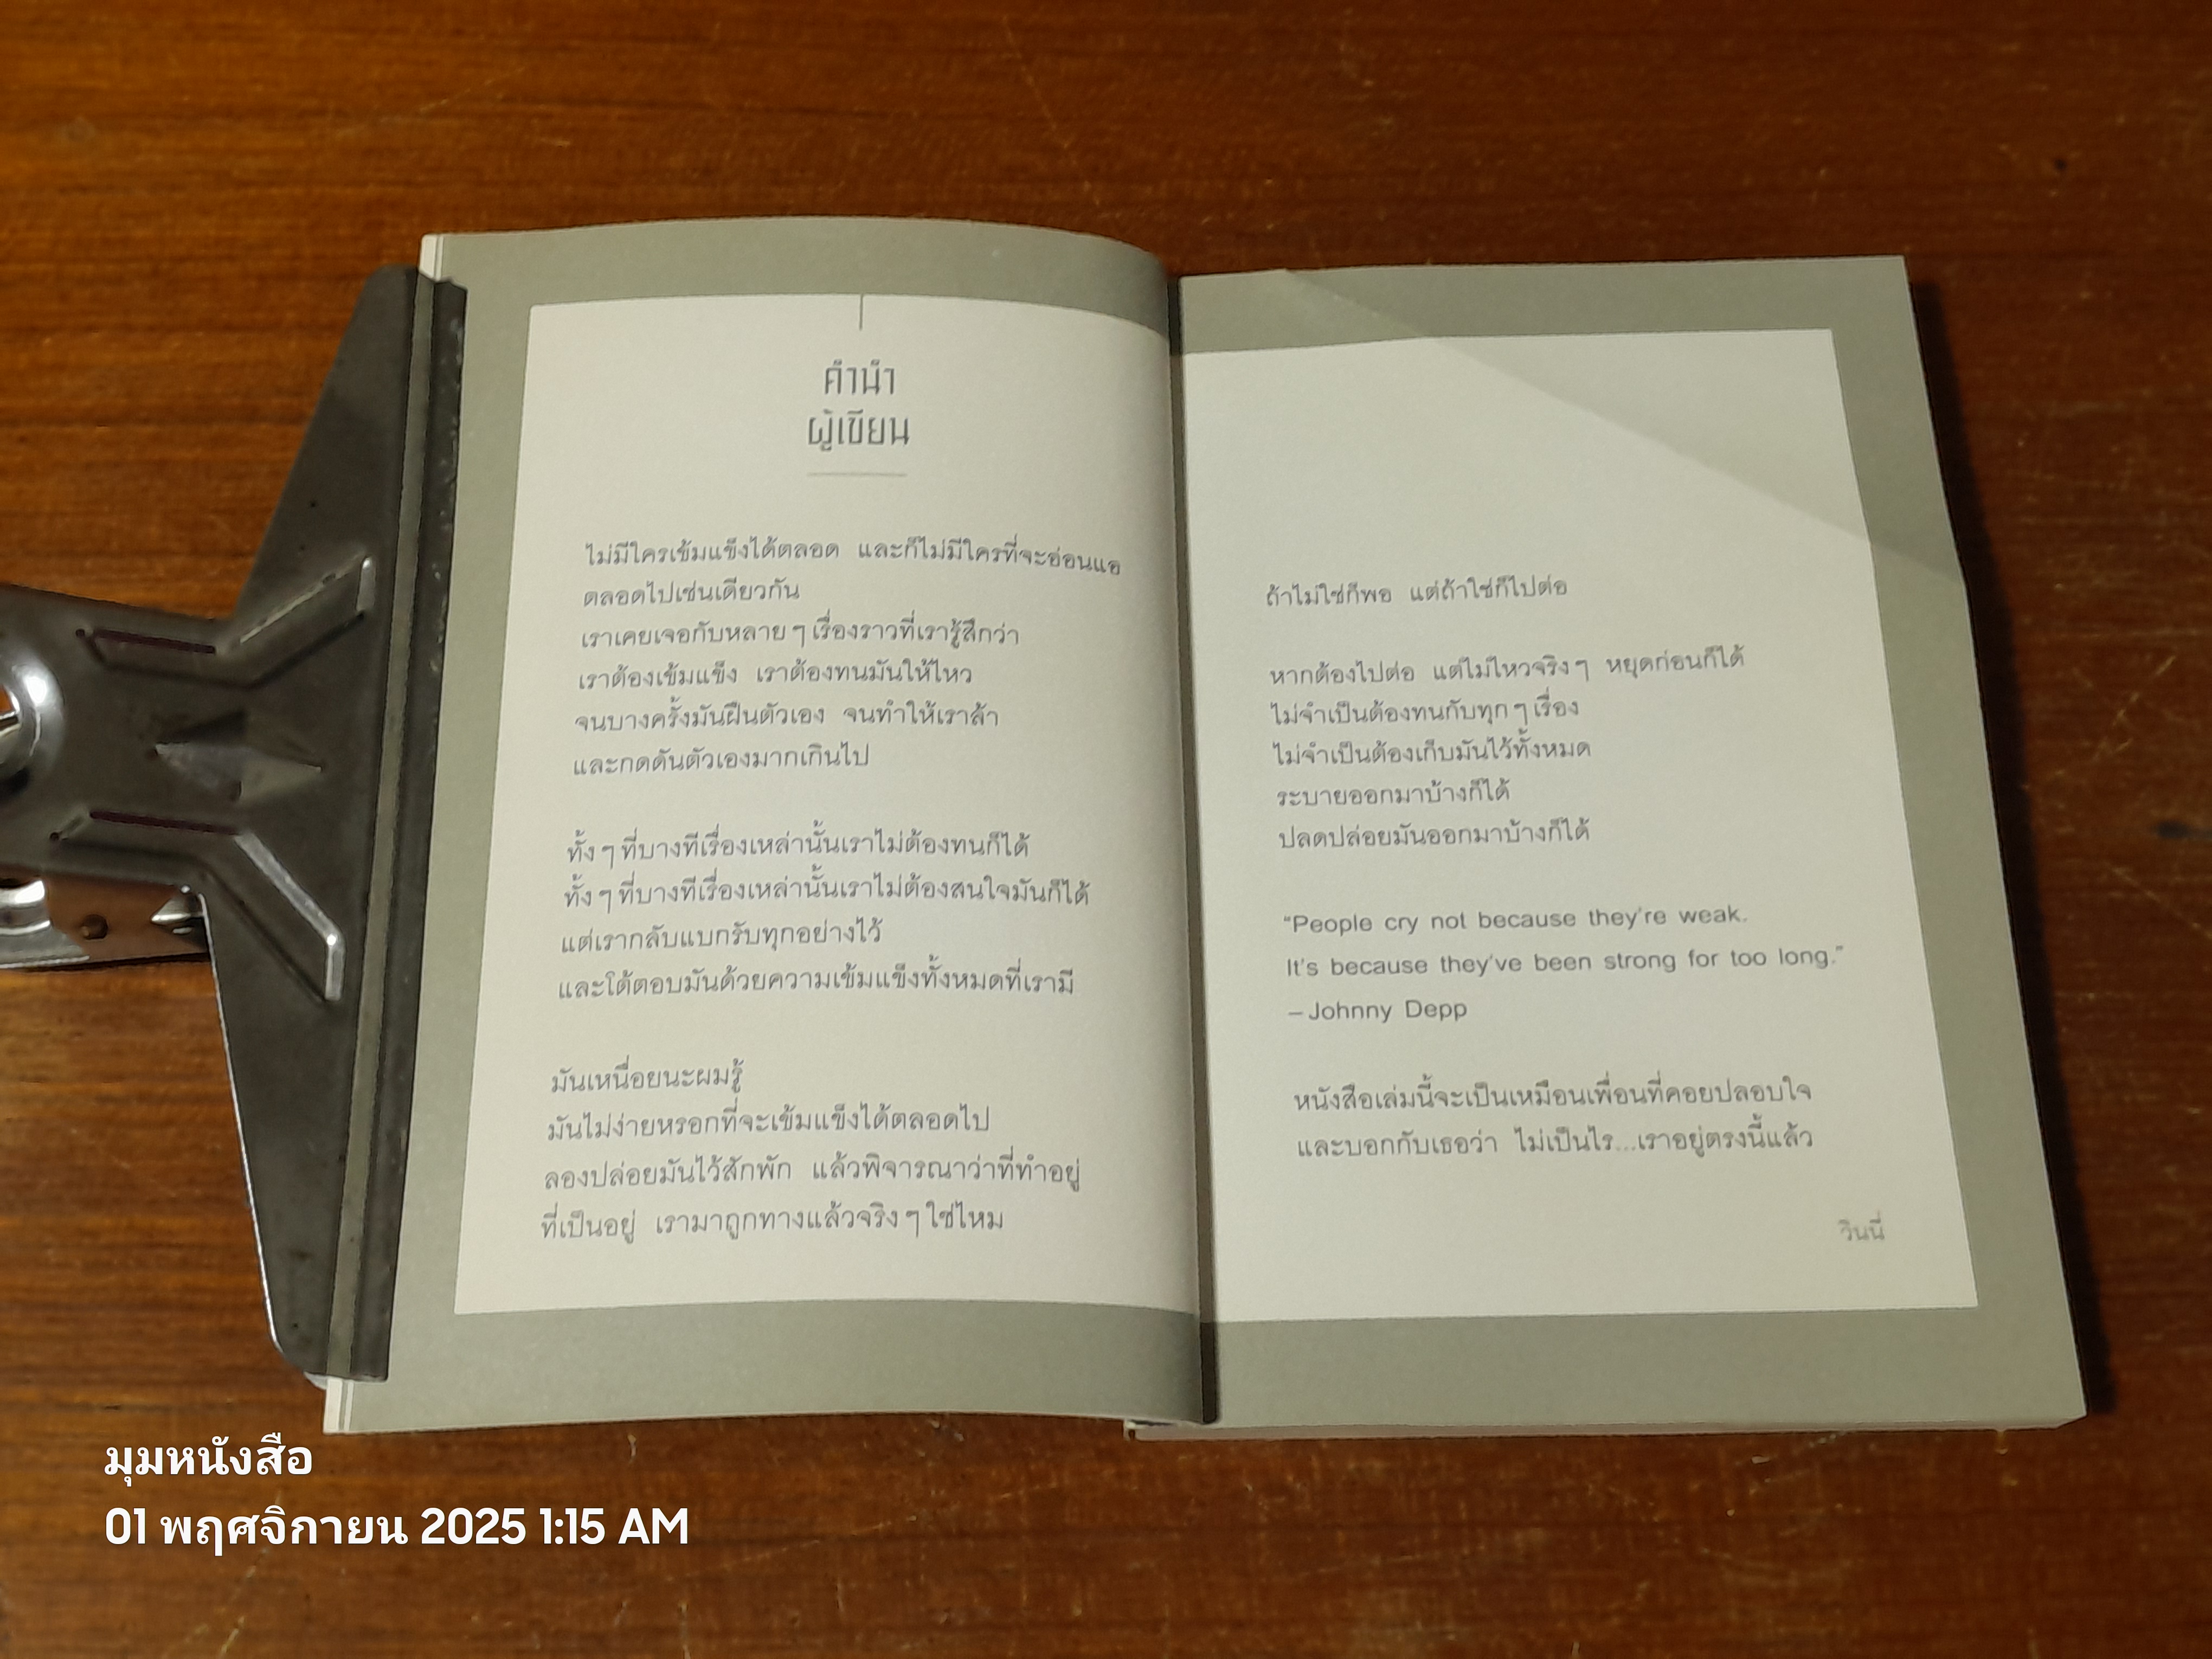 คำนำ
ผู้เขียน
ไม่มีใครเข้มแข็งได้ตลอด และก็ไม่มีใครที่จะอ่อนแอ
ตลอดไปเช่นเดียวกัน
เราเคยเจอกับหลายๆเรื่องราวที่เรารู้สึกว่า
เราต้องเข้มแข็ง เราต้องทนมันให้ไหว
จนบางครั้งมันฝืนตัวเอง จนทำให้เราล้า
และกดดันตัวเองมากเกินไป
ทั้งๆที่บางทีเรื่องเหล่านั้นเราไม่ต้องทนก็ได้
ทั้งๆที่บางทีเรื่องเหล่านั้นเราไม่ต้องสนใจมันก็ได้
แต่เรากลับแบกรับทุกอย่างไว้
และโต้ตอบมันด้วยความเข้มแข็งทั้งหมดที่เรามี
มันเหนื่อยนะผมรู้
มันไม่ง่ายหรอกที่จะเข้มแข็งได้ตลอดไป
ลองปล่อยมันไว้สักพัก แล้วพิจารณาว่าที่ทำอยู่
ที่เป็นอยู่ เรามาถูกทางแล้วจริงๆใช่ไหม
ถ้าไม่ใช่ก็พอ แต่ถ้าใช่ก็ไปต่อ
หากต้องไปต่อ แต่ไม่ไหวจริงๆ หยุดก่อนก็ได้
ไม่จำเป็นต้องทนกับทุกๆเรื่อง
ไม่จำเป็นต้องเก็บมันไว้ทั้งหมด
ระบายออกมาบ้างก็ได้
ปลดปล่อยมันออกมาบ้างก็ได้
"People cry not because they're weak.
It's because they've been strong for too long."
– Johnny Depp
หนังสือเล่มนี้จะเป็นเหมือนเพื่อนที่คอยปลอบใจ
และบอกกับเธอว่า ไม่เป็นไร...เราอยู่ตรงนี้แล้ว
วินนี่
มุมหนังสือ
01 พฤศจิกายน 2025 1:15 AM